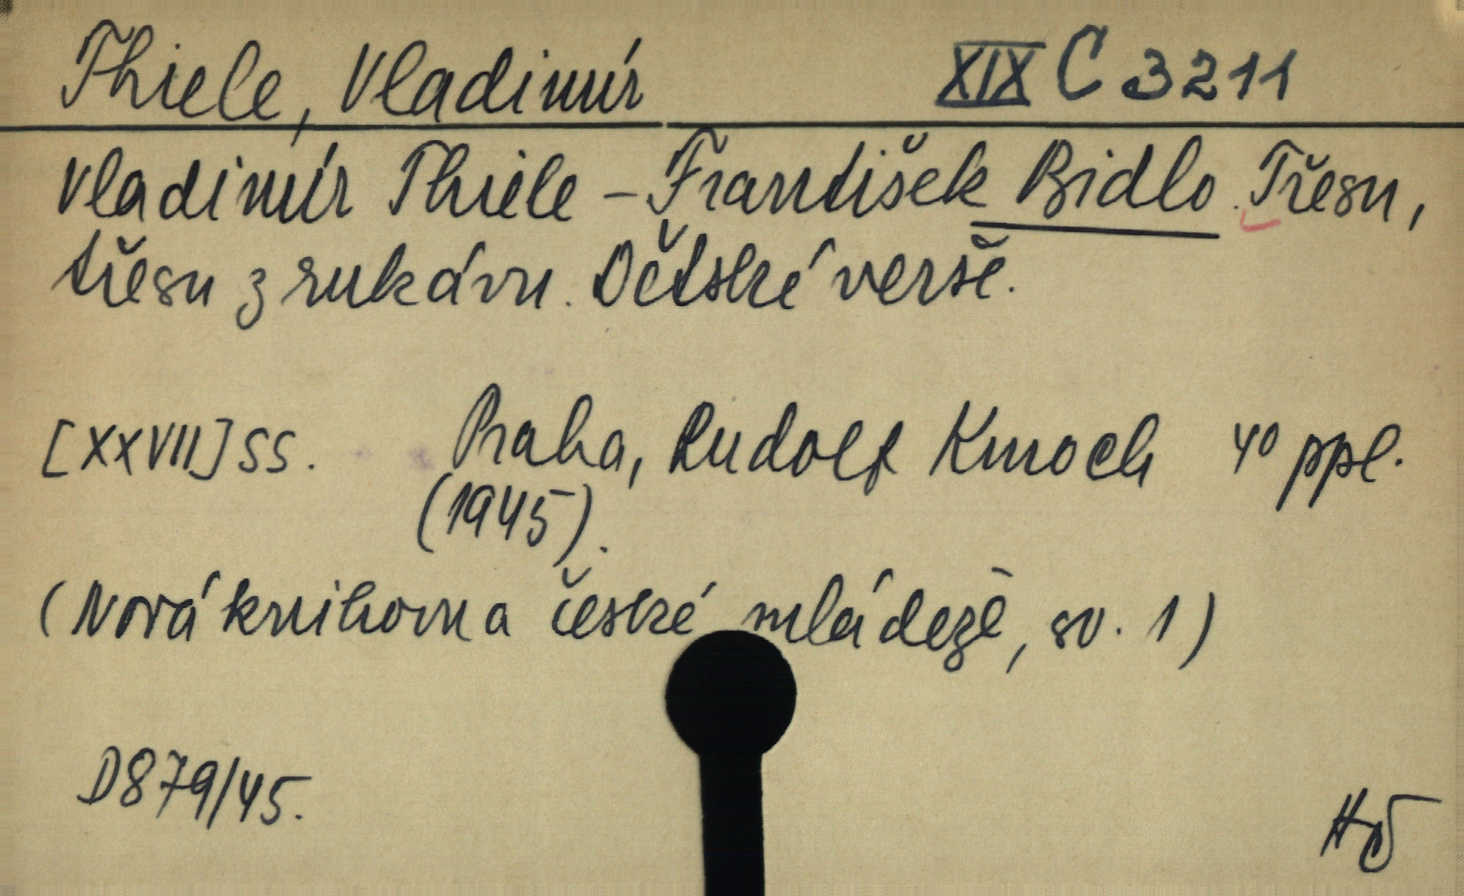 Thiele, Vladimír XIX C 3211
Vladimír Thiele – František Bidlo. Třesu,
třesu z rukávu. Dětské verše.
[XXVII] ss. Praha, Rudolf Kmoch 4° ppl.
(1945).
(Nová knihovna české mládeže, sv. 1)
D879/45.